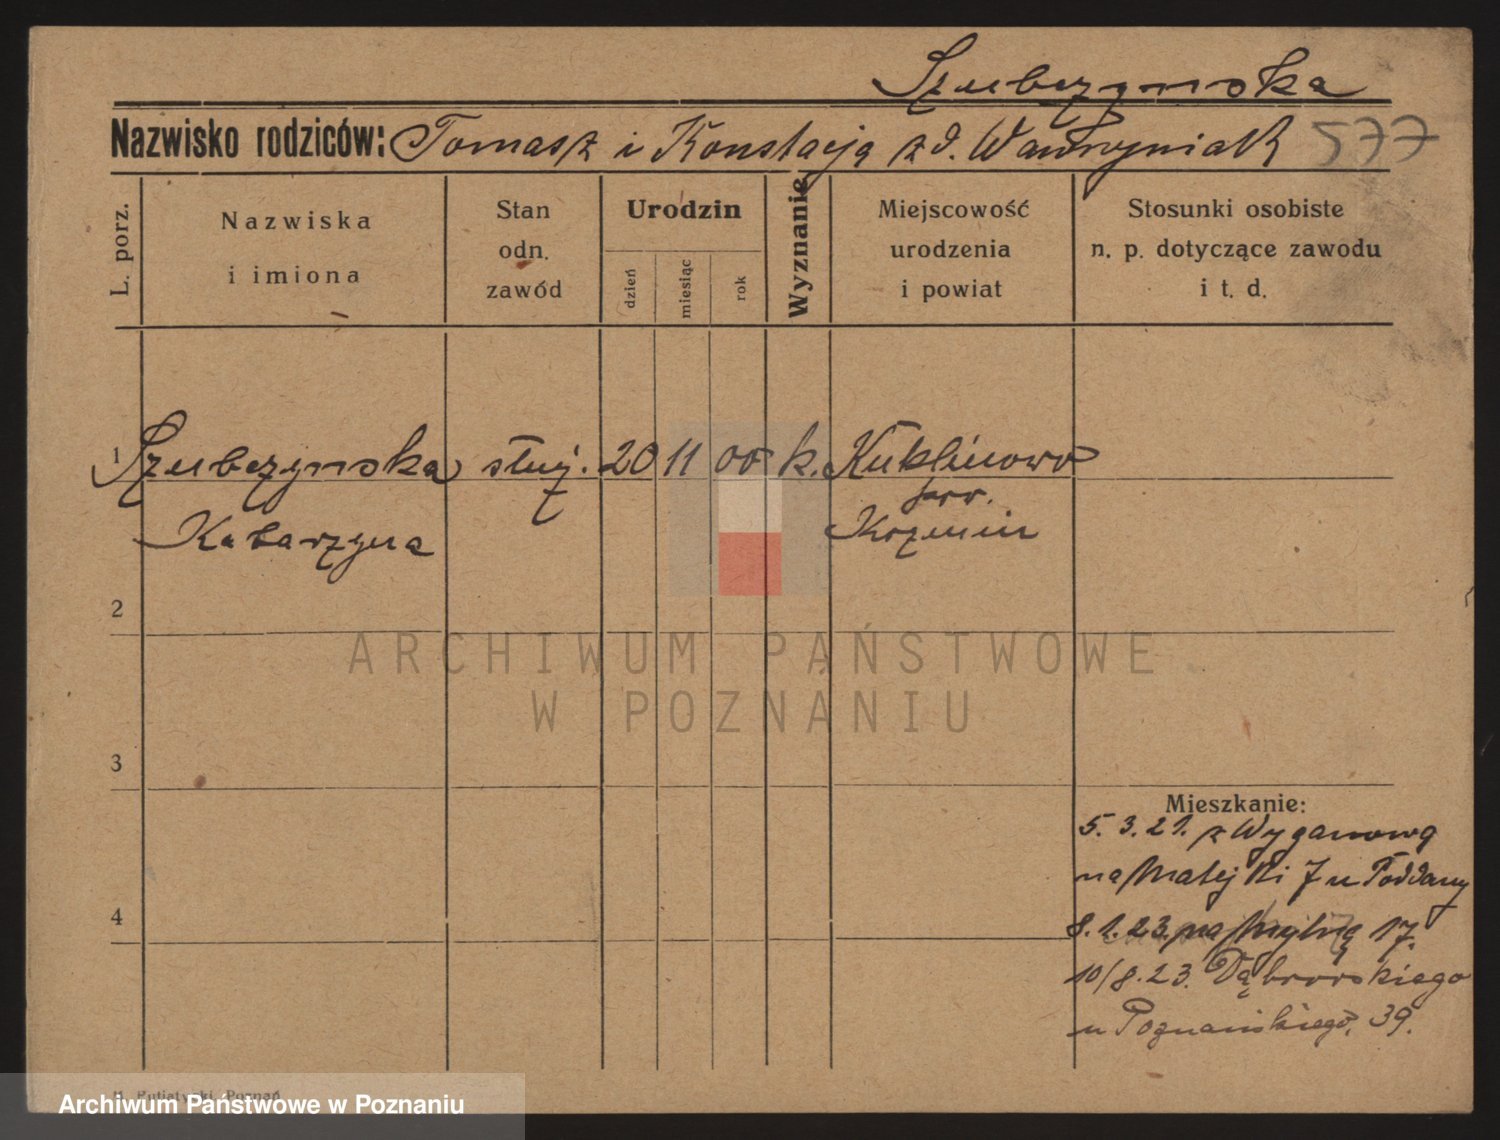 Szubczynska
Nazwisko rodziców: Tomasz i Konstacja zd. Wawrzyniak 577
L. porz.
Nazwiska
i imiona
Stan
odn.
zawód
Urodzin
dzień
miesiąc
rok
Wyznanie
Miejscowość
urodzenia
i powiat
Stosunki osobiste
n. p. dotyczące zawodu
i t. d.
1 Szubczynska służ. 20 11 00 k. Kuklinowo
pow.
Katarzyna Kozmin
2
ARCHIWUM PAŃSTWOWE
W POZNANIU
3
Mieszkanie:
5. 3. 21. z Wyganowa
na Matejki 7 u Poddany
4
8. 1. 23. na Mylną 17.
10/8. 23. Dąbrowskiego
u Poznańskiego. 39.
Poznań
Archiwum Państwowe w Poznaniu